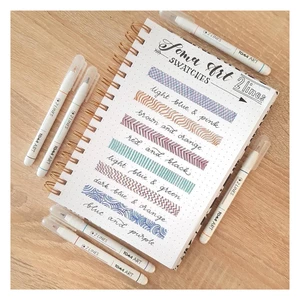 Toma Art
SWATCHES
2 lines
light blue & pink
brown and orange
red and black
light blue & green
dark blue & orange
blue and purple
TOMA ART
TOMA ART